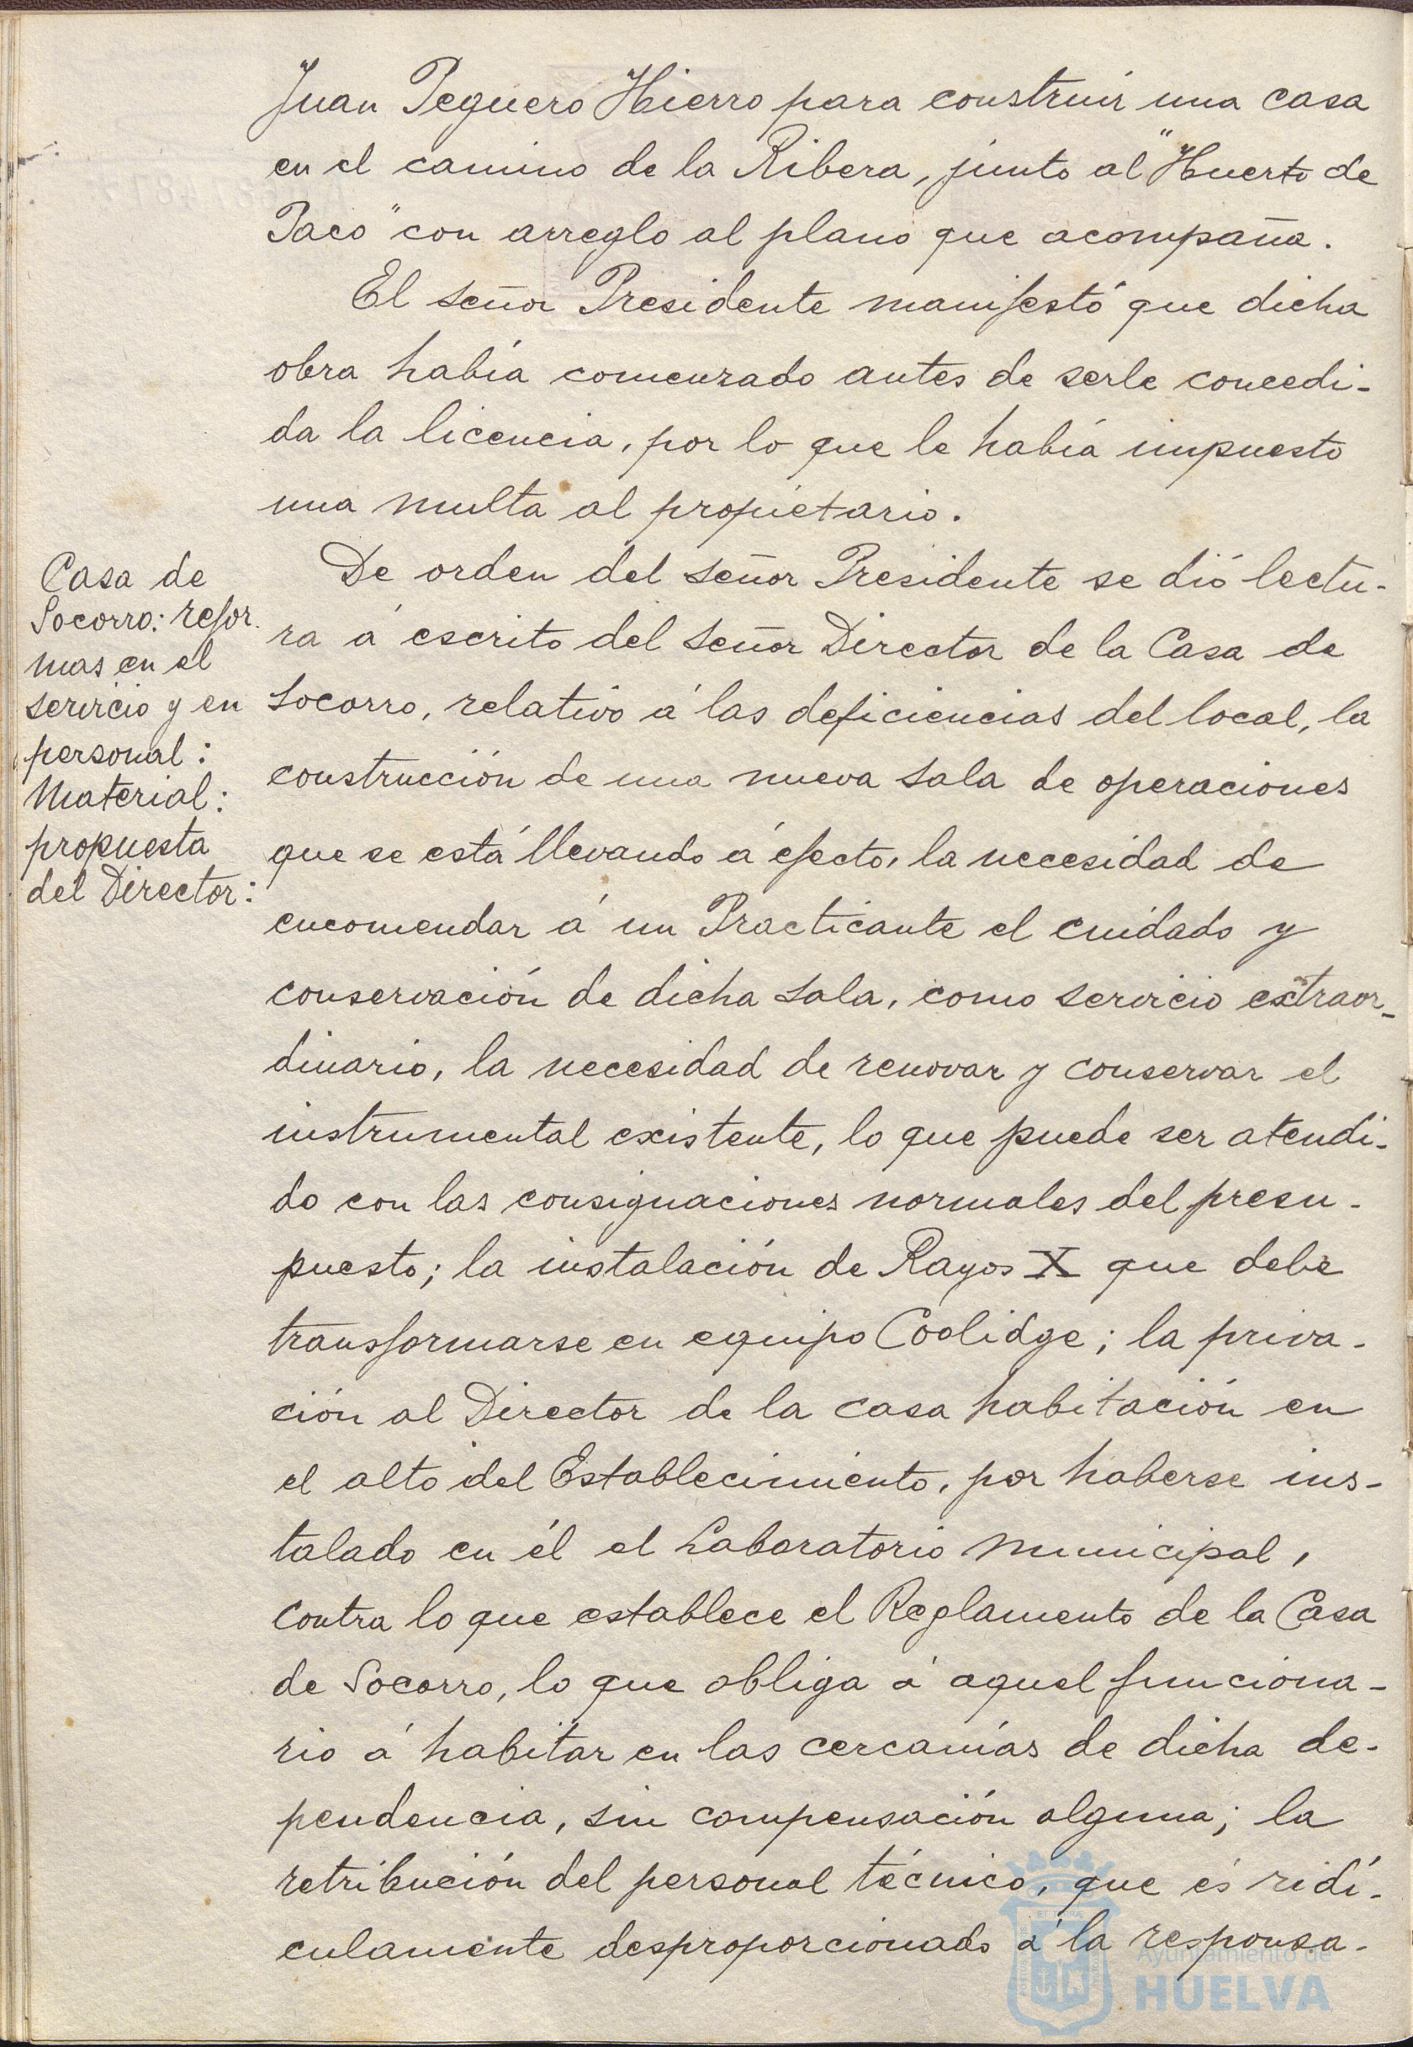 Juan Peguero Hierro para construir una casa
en el camino de la Ribera, junto al "Huerto de
Paco" con arreglo al plano que acompaña.
El señor Presidente manifestó que dicha
obra había comenzado antes de serle concedi-
da la licencia, por lo que le había impuesto
una multa al propietario.
Casa de
Socorro: refor-
mas en el
servicio y en
personal:
Material:
propuesta
del Director:
De orden del señor Presidente se dió lectu-
ra á escrito del señor Director de la Casa de
Socorro, relativo á las deficiencias del local, la
construcción de una nueva sala de operaciones
que se está llevando á efecto, la necesidad de
encomendar á un Practicante el cuidado y
conservación de dicha sala, como servicio extraor-
dinario, la necesidad de renovar y conservar el
instrumental existente, lo que puede ser atendi-
do con las consignaciones normales del presu-
puesto; la instalación de Rayos X que debe
transformarse en equipo Coolidge; la priva-
ción al Director de la casa habitación en
el alto del Establecimiento, por haberse ins-
talado en él el Laboratorio municipal,
contra lo que establece el Reglamento de la Casa
de Socorro, lo que obliga á aquel funciona-
rio á habitar en las cercanías de dicha de-
pendencia, sin compensación alguna; la
retribución del personal técnico, que és ridí-
culamente desproporcionado á la responsa-
Ayuntamiento de
HUELVA